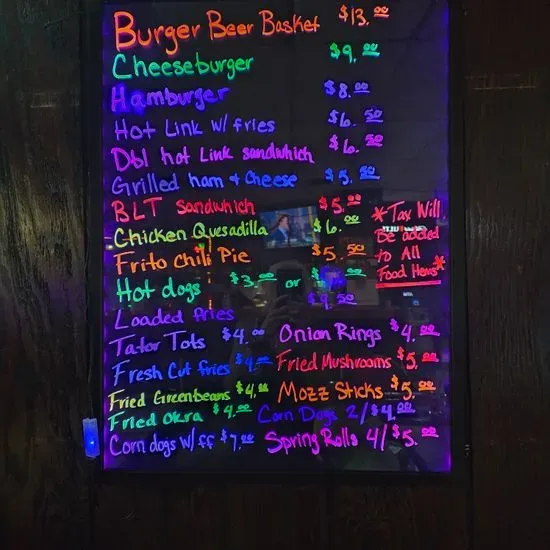 Burger Beer Basket $13.00
Cheeseburger $9.00
Hamburger $8.00
Hot Link w/ fries $6.50
Dbl hot Link sandwhich $6.50
Grilled ham & Cheese $5.50
BLT sandwhich $5.00
Chicken Quesadilla $6.00
Frito chili Pie $5.50
Hot dogs $3.00 or
Loaded fries $9.50
*Tax Will
Be added
to All
Food Items*
Tator Tots $4.00 Onion Rings $4.00
Fresh Cut fries $4.00 Fried Mushrooms $5.00
Fried Greenbeans $4.00 Mozz Sticks $5.00
Fried Okra $4.00 Corn Dogs 2/$4.00
Corn dogs w/ff $7.00 Spring Rolls 4/$5.00